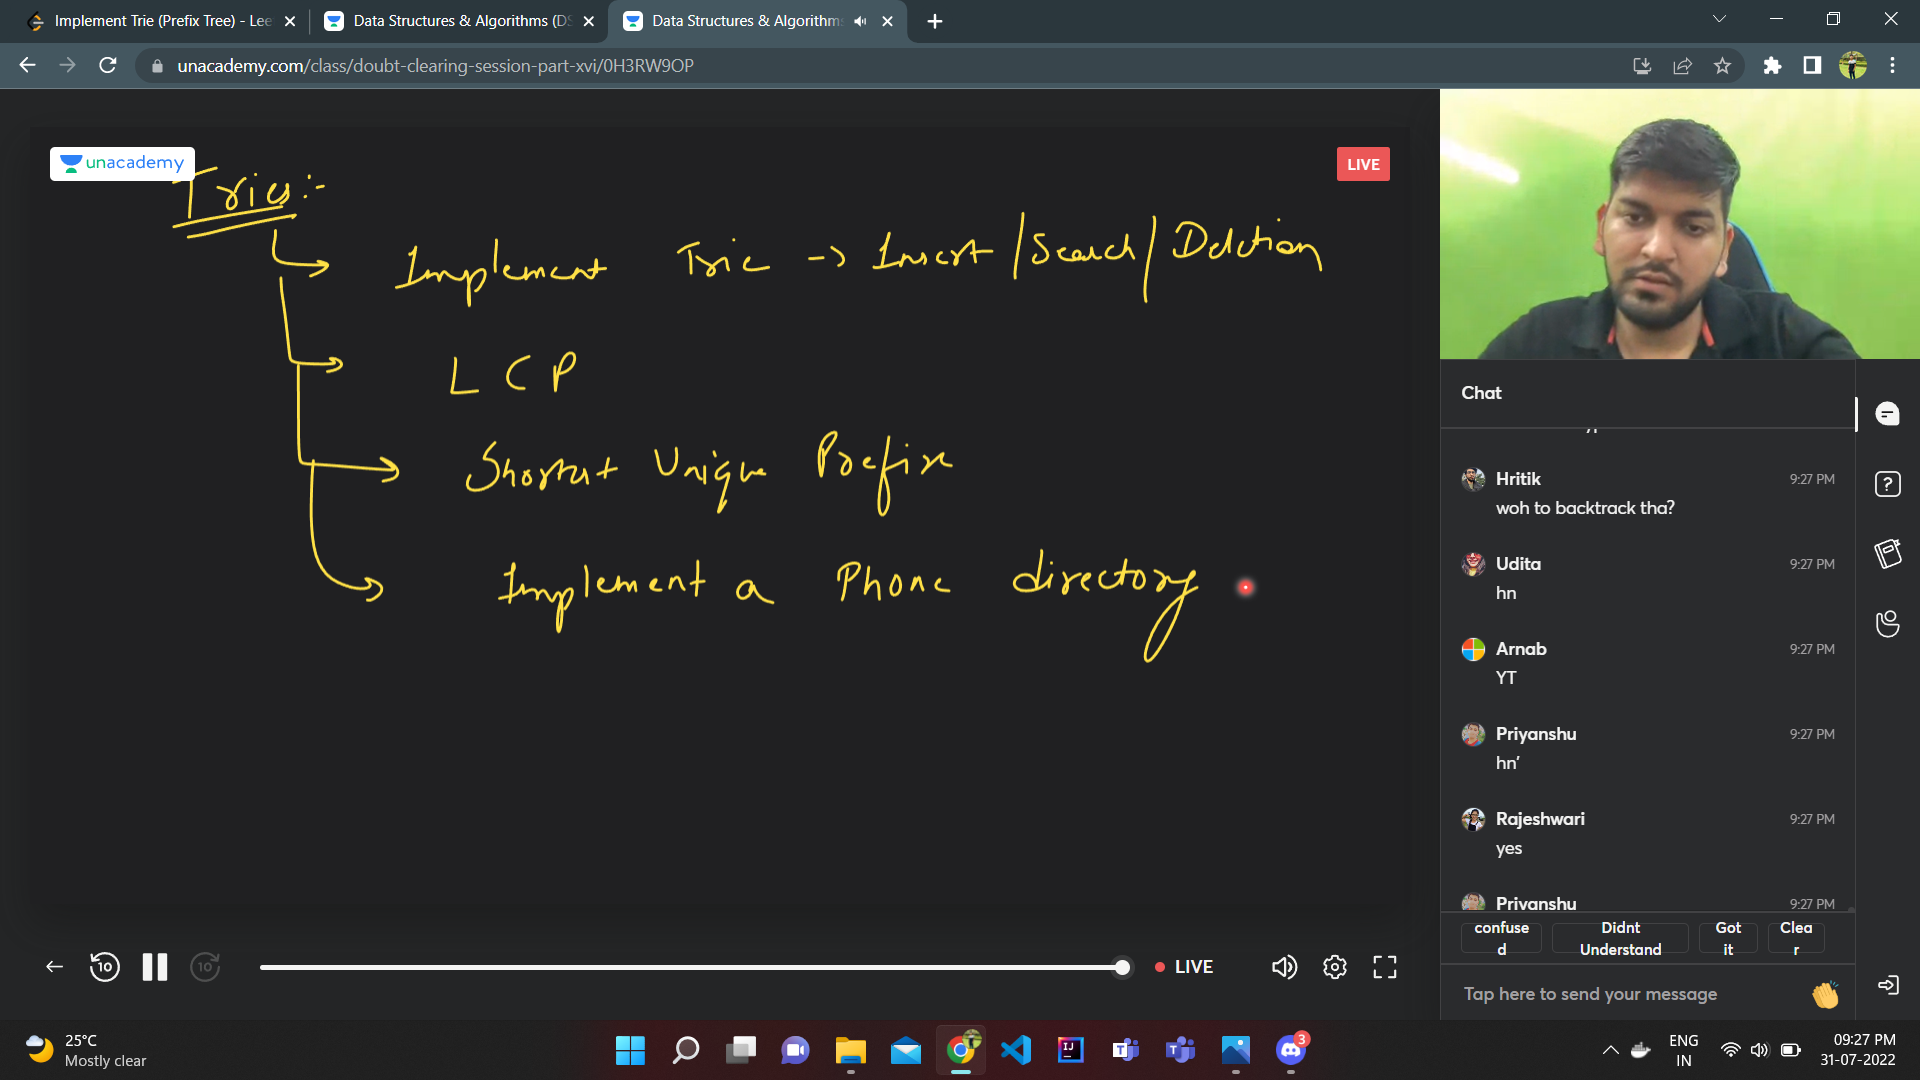 Implement Trie (Prefix Tree) - Lee
Data Structures & Algorithms (DS
Data Structures & Algorithms
unacademy.com/class/doubt-clearing-session-part-xvi/0H3RW9OP
unacademy
LIVE
Tries :-
Implement Trie -> Insert / Search / Deletion
L C P
Shortest Unique Prefix
Implement a Phone directory
Chat
Hritik 9:27 PM
woh to backtrack tha?
Udita 9:27 PM
hn
Arnab 9:27 PM
YT
Priyanshu 9:27 PM
hn'
Rajeshwari 9:27 PM
yes
Priyanshu 9:27 PM
confuse
d
Didnt
Understand
Got
it
Clea
r
10
10
LIVE
Tap here to send your message
25°C
Mostly clear
3
ENG
IN
09:27 PM
31-07-2022